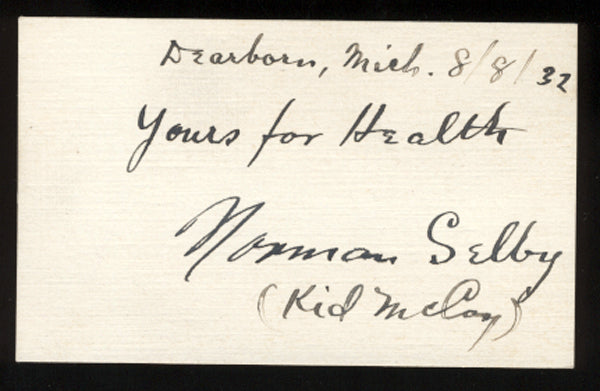 Dearborn, Mich. 8/8/32
Yours for Health
Norman Selby
(Kid McCoy)